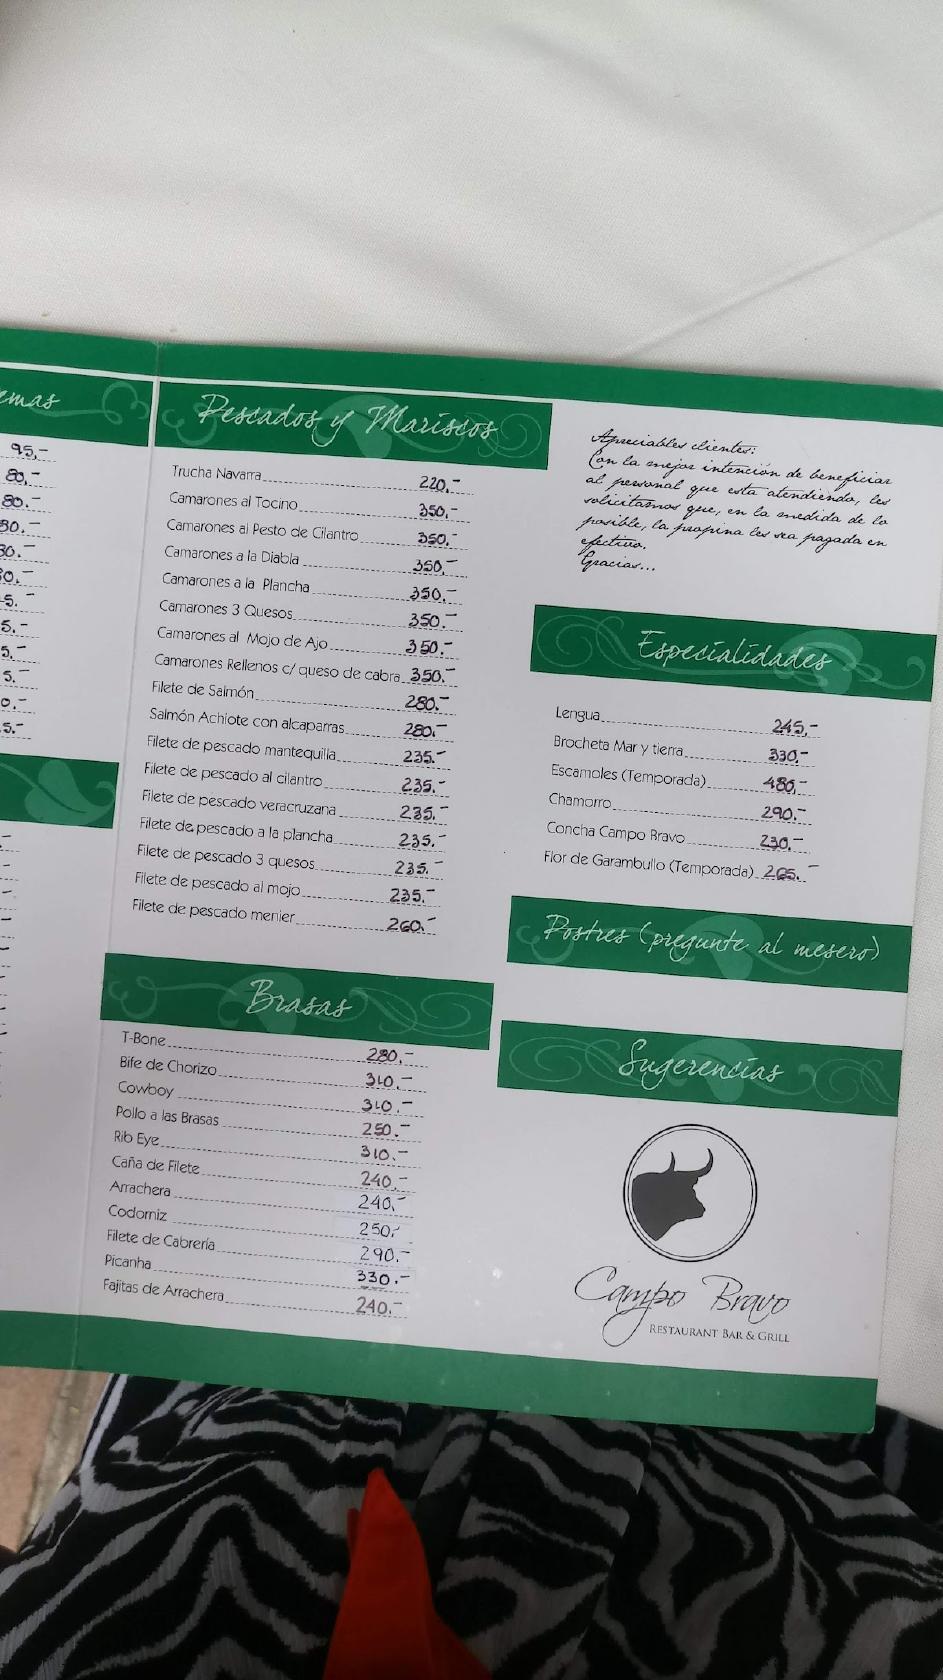 emas
95,-
80,-
80.-
Pescados y Mariscos
Trucha Navarra 220,-
Camarones al Tocino 350,-
Camarones al Pesto de Cilantro 350,-
Camarones a la Diabla 350,-
Camarones a la Plancha 350,-
Camarones 3 Quesos 350.-
Camarones al Mojo de Ajo 350.-
Camarones Rellenos c/ queso de cabra 350.-
Filete de Salmón 280.-
Salmón Achiote con alcaparras 280.-
Filete de pescado mantequilla 235.-
Filete de pescado al cilantro 235.-
Filete de pescado veracruzana 235.-
Filete de pescado a la plancha 235.-
Filete de pescado 3 quesos 235.-
Filete de pescado al mojo 235.-
Filete de pescado menier 260.-
Brasas
T-Bone 280.-
Bife de Chorizo 310.-
Cowboy 310.-
Pollo a las Brasas 250.-
Rib Eye 310.-
Caña de Filete 240.-
Arrachera 240.-
Codorniz 250.-
Filete de Cabrería 290.-
Picanha 330.-
Fajitas de Arrachera 240.-
Apreciables clientes:
Con la mejor intención de beneficiar
al personal que esta atendiendo, les
solicitamos que, en la medida de lo
posible, la propina les sea pagada en
efectivo.
Gracias...
Especialidades
Lengua 245,-
Brocheta Mar y tierra 330.-
Escamoles (Temporada) 480.-
Chamorro 290.-
Concha Campo Bravo 230.-
Flor de Garambullo (Temporada) 265.-
Postres (pregunte al mesero)
Sugerencias
Campo Bravo
RESTAURANT BAR & GRILL